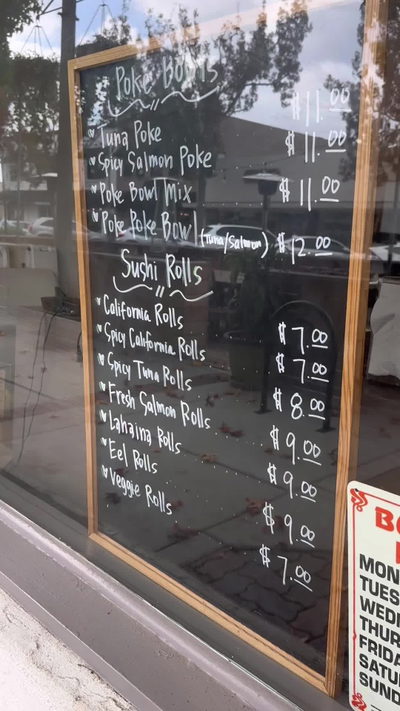 Poke Bowls
Tuna Poke $11.00
Spicy Salmon Poke $11.00
Poke Bowl Mix $11.00
Poke Poke Bowl (Tuna/Salmon) $12.00
Sushi Rolls
California Rolls $7.00
Spicy California Rolls $7.00
Spicy Tuna Rolls $8.00
Fresh Salmon Rolls $9.00
Lahaina Rolls $9.00
Eel Rolls $9.00
Veggie Rolls $7.00
MON
TUES
WEDN
THUR
FRIDA
SATU
SUND